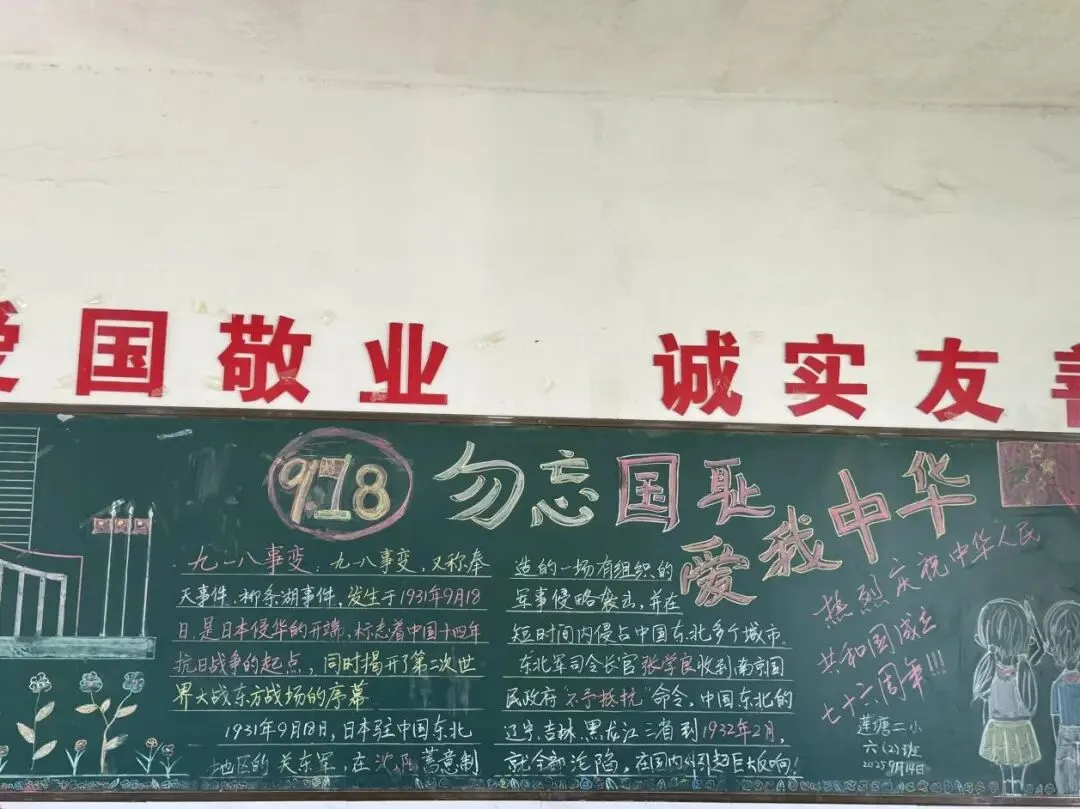 爱国敬业 诚实友善
9.18 勿忘国耻
爱我中华
九一八事变:九一八事变,又称奉
天事件、柳条湖事件,发生于1931年9月18
日,是日本侵华的开端,标志着中国十四年
抗日战争的起点,同时揭开了第二次世
界大战东方战场的序幕
1931年9月18日,日本驻中国东北
地区的关东军,在沈阳蓄意制
造的一场有组织的
军事侵略袭击,并在
短时间内侵占中国东北多个城市.
东北军司令长官张学良收到南京国
民政府"不予抵抗"命令,中国东北的
辽宁、吉林、黑龙江三省到1932年2月,
就全部沦陷,在国内外引起巨大反响!
热烈庆祝中华人民
共和国成立
七十六周年!!!
莲塘二小
六(2)班
2025 9月14日